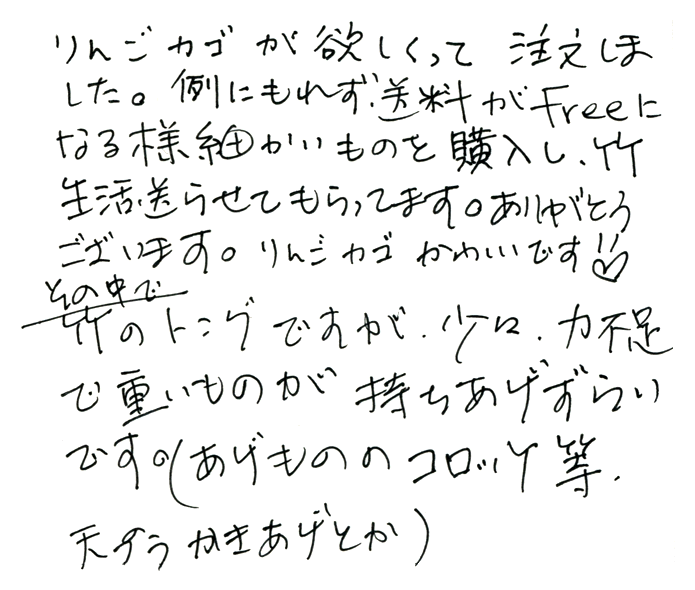 りんごカゴが欲しくって 注文しま
した。例にもれず、送料がFreeに
なる様細かいものを購入し、竹
生活送らせてもらってます。ありがとう
ございます。りんごカゴ かわいいです!!♡
その中で
竹のトングですが、少々、力不足
で重いものが持ちあげずらい
です。(あげもののコロッケ等、
天プラかきあげとか)